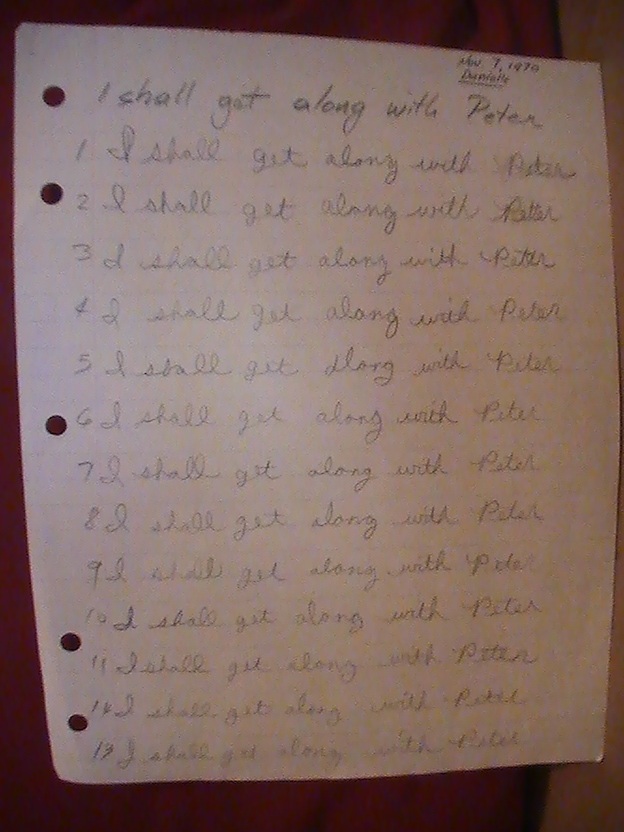 Nov. 7, 1979
Danielle
I shall get along with Peter
1 I shall get along with Peter
2 I shall get along with Peter
3 I shall get along with Peter
4 I shall get along with Peter
5 I shall get along with Peter
6 I shall get along with Peter
7 I shall get along with Peter
8 I shall get along with Peter
9 I shall get along with Peter
10 I shall get along with Peter
11 I shall get along with Peter
12 I shall get along with Peter
13 I shall get along with Peter